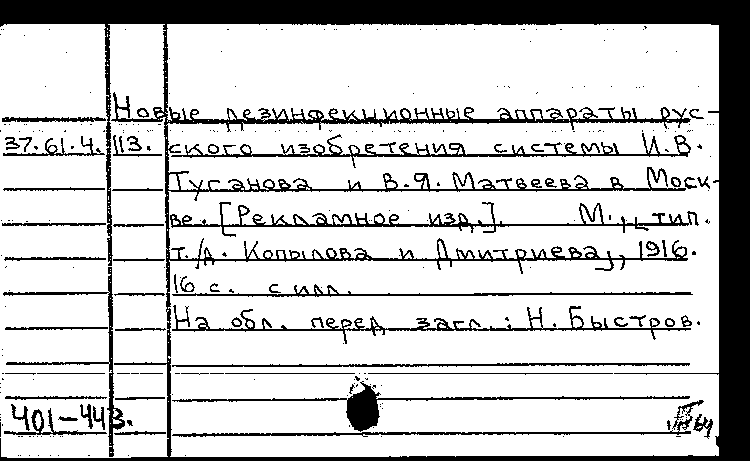 Новые дезинфекционные аппараты рус-
37.61.4. 113. ского изобретения системы И.В.
Туганова и В.Я. Матвеева в Моск-
ве. [Рекламное изд.]. М., тип.
т./д. Копылова и Дмитриева, 1916.
16 с. с илл.
На обл. перед загл.: Н. Быстров.
401-443.